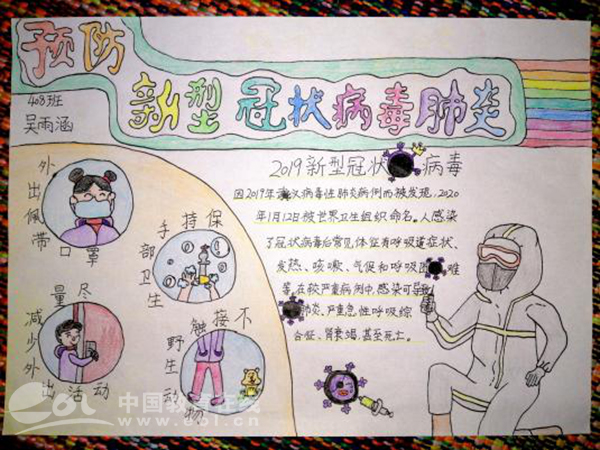 预防
新型冠状病毒肺炎
408班
吴雨涵
外出佩带口罩
保持手部卫生
尽量减少外出活动
不接触野生动物
2019新型冠状病毒
因2019年武汉病毒性肺炎病例而被发现，2020
年1月12日被世界卫生组织命名。人感染
了冠状病毒后常见体征有呼吸道症状、
发热、咳嗽、气促和呼吸困难
等。在较严重病例中，感染可导致
肺炎、严重急性呼吸综
合症、肾衰竭，甚至死亡。
eol 中国教育在线
www.eol.cn